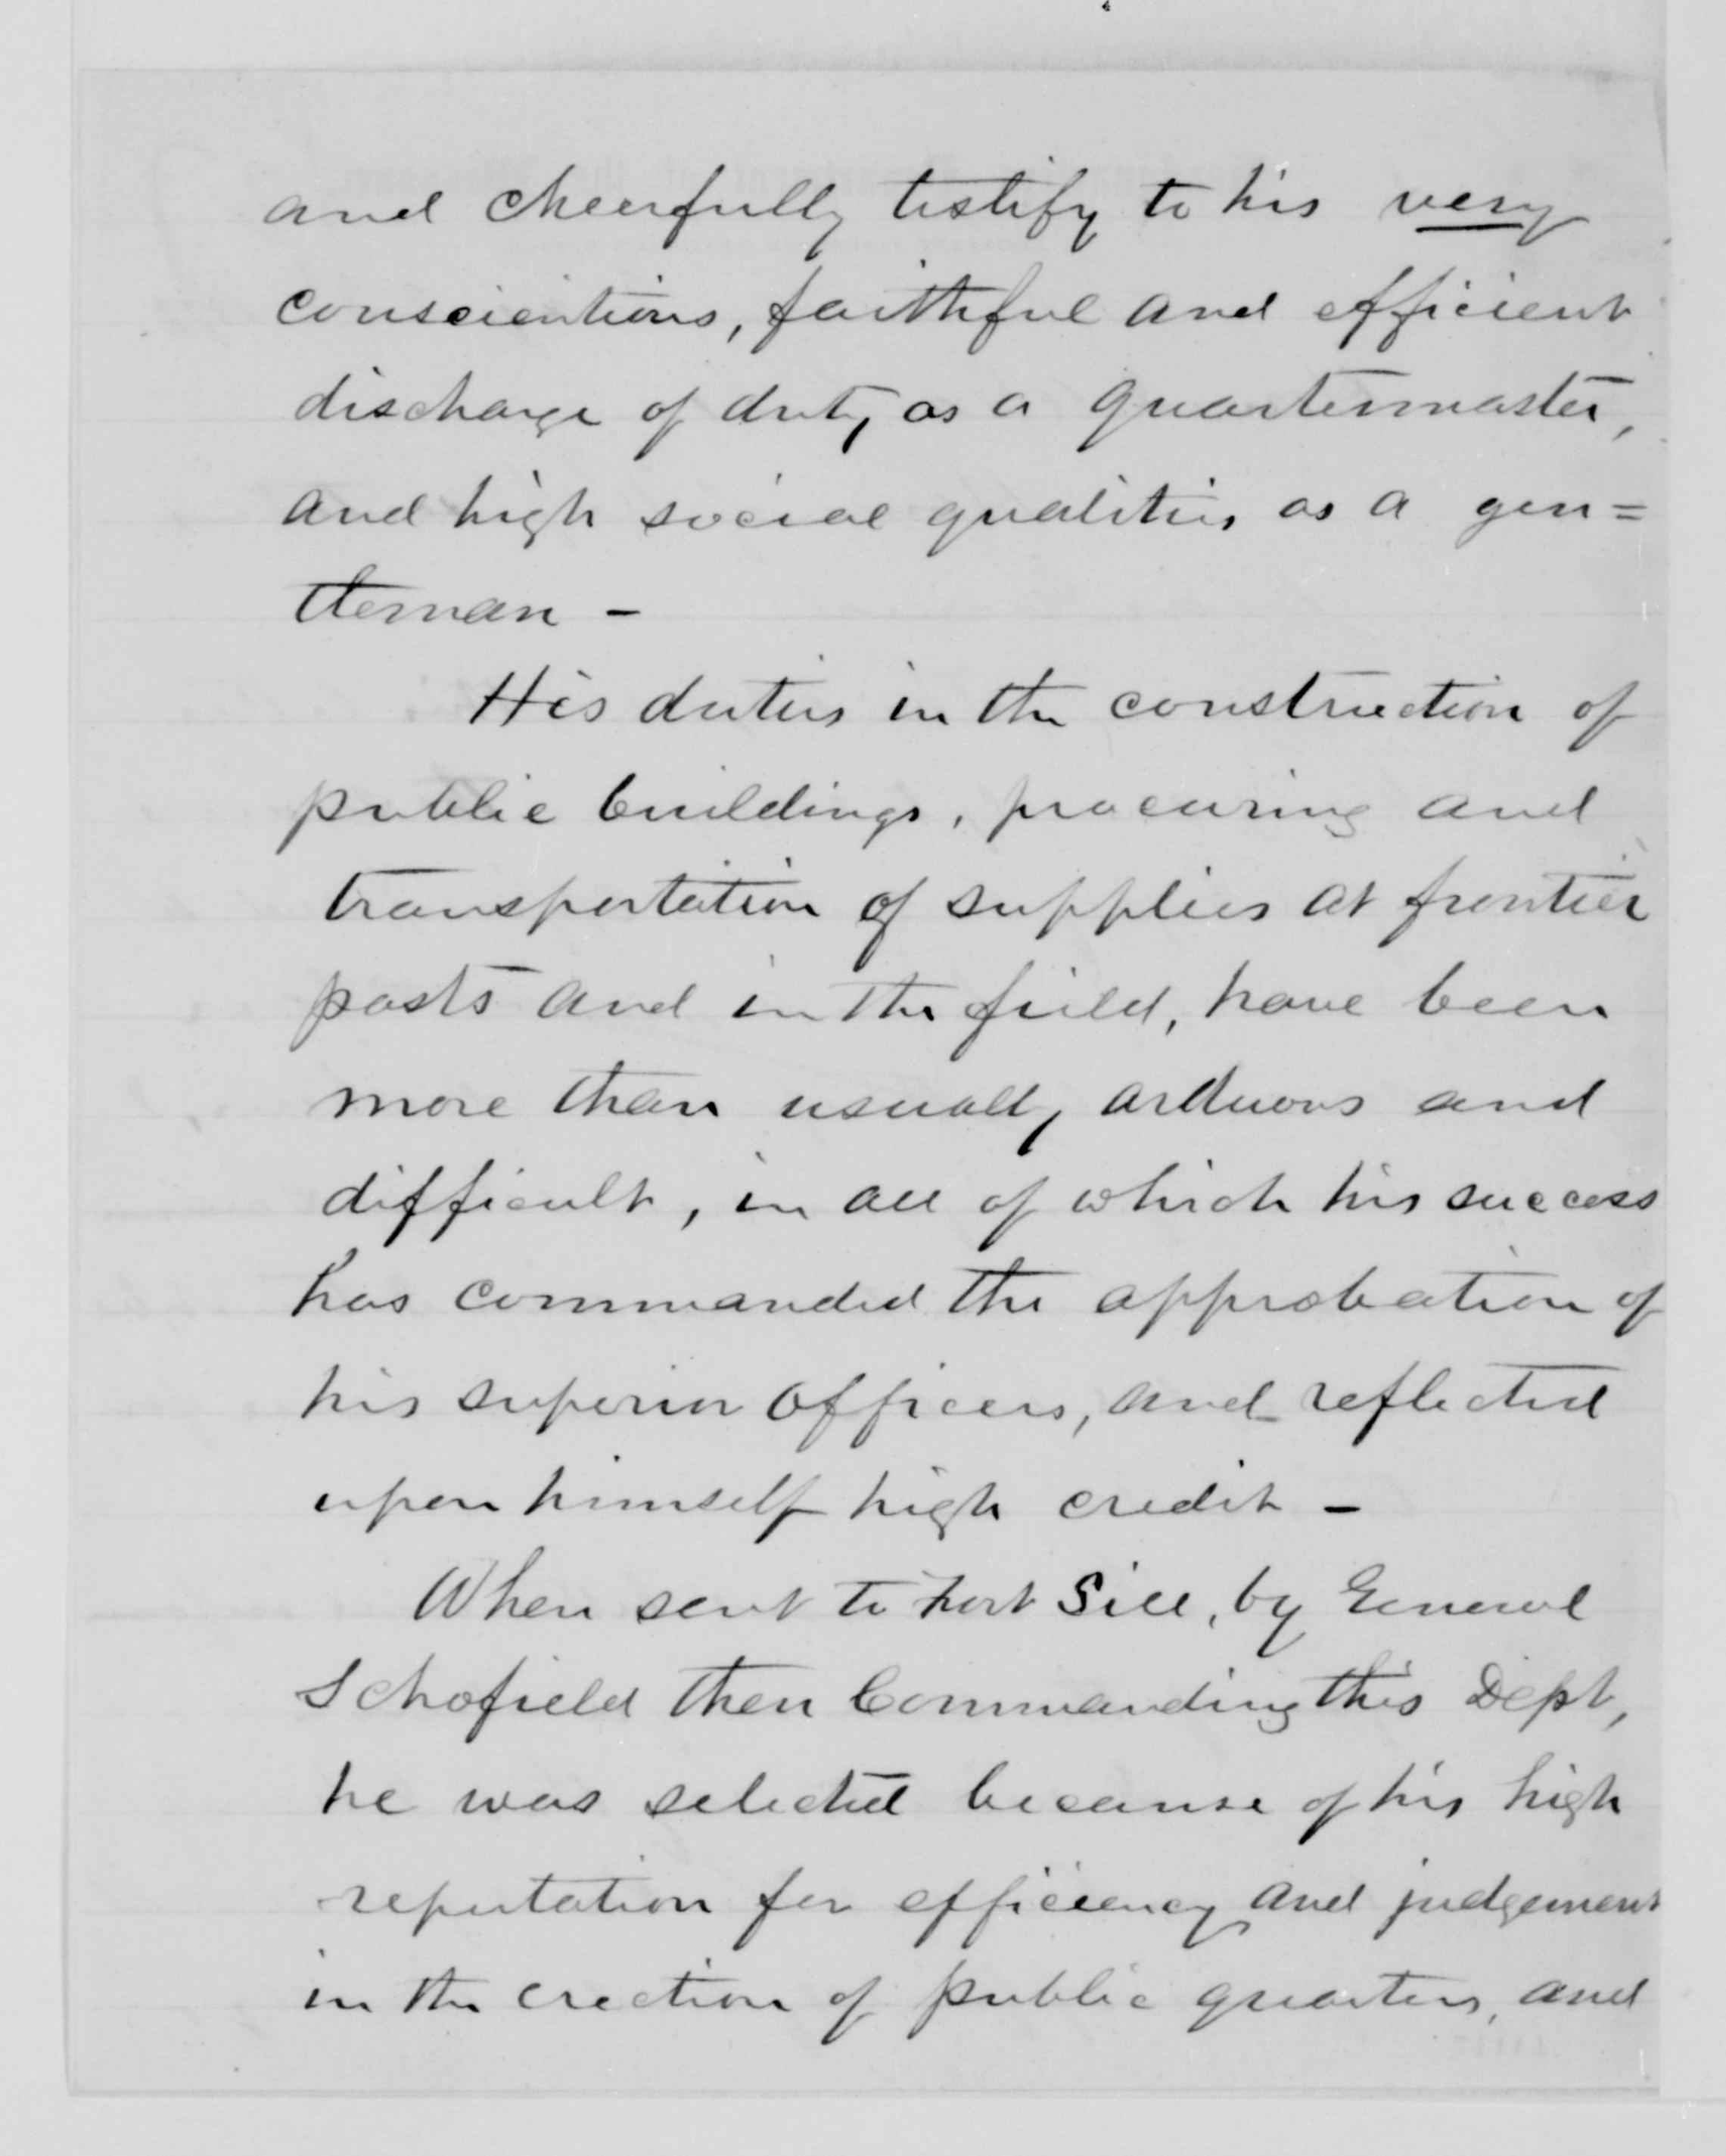 and cheerfully testify to his very
conscientious, faithful and efficient
discharge of duty as a quartermaster,
and high social qualities as a gen=
tleman -
His duties in the construction of
public buildings, procuring and
transportation of supplies at frontier
posts and in the field, have been
more than usually arduous and
difficult, in all of which his success
has commanded the approbation of
his superior officers, and reflected
upon himself high credit -
When sent to Fort Sill, by General
Schofield then Commanding this Dept,
he was selected because of his high
reputation for efficiency and judgement
in the erection of public quarters, and